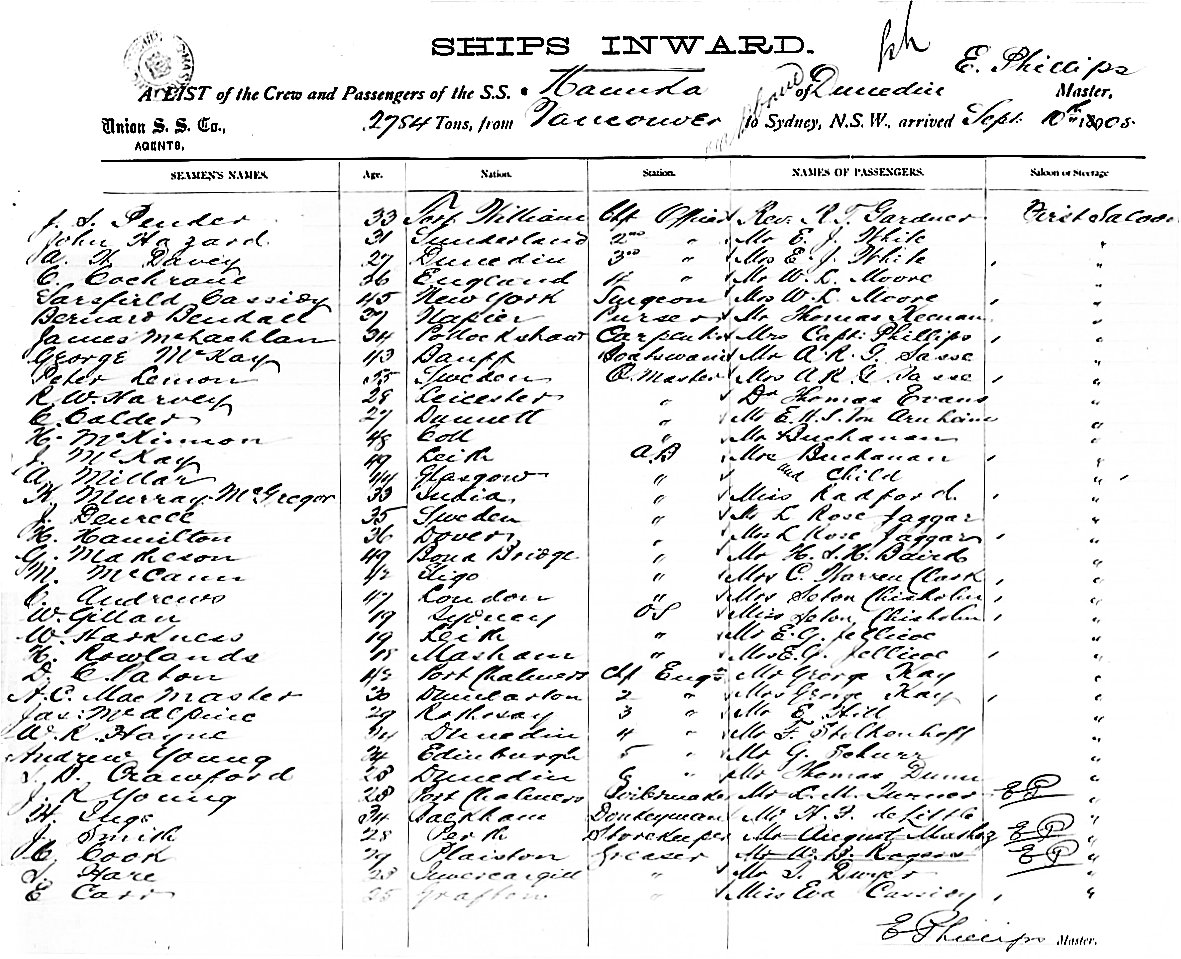 SHIPS INWARD.
E. Phillips
A LIST of the Crew and Passengers of the S.S. Manuka of Dunedin Master,
Union S. S. Co., 2754 Tons, from Vancouver to Sydney, N.S.W., arrived Sept. 10th 1905.
AGENTS,
SEAMEN'S NAMES. Age. Nation. Station. NAMES OF PASSENGERS. Saloon or Steerage
J. S. Pender 33 Fort William Chf Officer Rev. R. T. Gardner First Saloon
John Hazard 31 Sunderland 2nd " Mr E. J. White "
A. H. Davey 27 Dunedin 3rd " Mrs E. J. White "
C. Cochrane 26 England 4 " Mr W. L. Moore "
Sarsfield Cassidy 45 New York Surgeon Mrs W. L. Moore "
Bernard Bendall 37 Napier Purser Mr Thomas Keenan "
James McLachlan 34 Pollockshaws Carpenter Mrs Capt. Phillips "
George McKay 43 Banff Boatswain Mr A. R. G. Sasse "
Peter Lemon 35 Sweden Q. Master Mrs A. R. G. Sasse "
R. W. Harvey 28 Leicester " Dr Thomas Evans "
C. Calder 27 Dunnett " Mr E. H. S. Von Arnheim "
H. McKinnon 48 Coll " Mr Buchanan "
J. McKay 49 Leith A.B Mrs Buchanan "
A. Millar 44 Glasgow " and Child "
K. Murray McGregor 33 India " Miss Radford "
J. 35 Sweden " Mr L Rose Jaggar "
H. Hamilton 36 Dover " Mrs L Rose Jaggar "
G. Matheson 49 Bona Bridge " Mr H. S. H. Baird "
M. McCann 42 Sligo " Mrs C. Warren Clark "
C. Andrews 47 London " Mrs Seton Chisholm "
W. Gillan 19 Sydney OS Miss Seton Chisholm "
W. Harkness 19 Leith " Mr E. G. Jellicoe "
H. Rowlands 18 Masham " Mrs E. G. Jellicoe "
D. C. Paton 42 Port Chalmers Chf Engr Mr George Kay "
A. C. MacMaster 30 Dumbarton 2 " Mrs George Kay "
Jas. McAlpine 29 Rothesay 3 " Mr E. Hill "
W. R. Hayne 24 Dunedin 4 " Mr F. Stolkenhoff "
Andrew Young 24 Edinburgh 5 " Mr G. Schurr "
J. D. Crawford 28 Dunedin 6 " Mr Thomas Dunn "
J. R. Young 28 Port Chalmers Boilermaker Mr L. M. Turner EP "
H. Inge 34 Packham Donkeyman Mr H. F. de Little "
J. Smith 28 Perth Storekeeper Mr August EP "
C. Cook 29 Plaiston Greaser Mr W. D. Rogers EP "
J. Hare 23 Invercargill " Mr J. Dwyer "
E Carr 25 Grafton " Miss Eva Cassidy "
E Phillips Master.